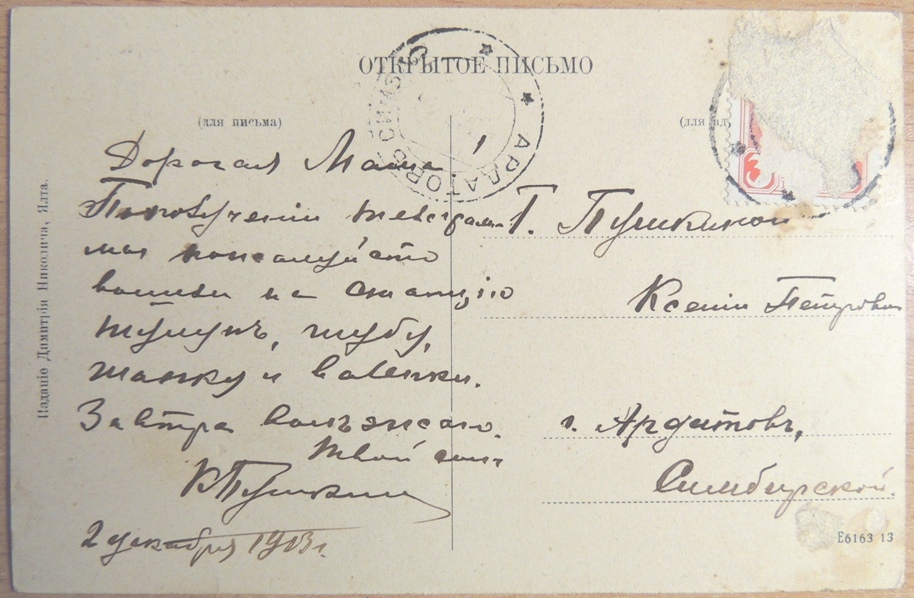 ОТКРЫТОЕ ПИСЬМО
(для письма)
Дорогая Мама!
По получении телеграм-
мы пожалуйста
вышли на станцію
тулупъ, шубу,
шапку и валенки.
Завтра выѣзжаю.
Твой сынъ
К Пушкин
2 декабря 1913 г.
Г. Пушкиной
Ксеніи Петровнѣ
г. Ардатовъ,
Симбирской.
Изданіе Димитрія Николича, Ялта.
Е6163 13
АРДАТОВЪ СИМБ